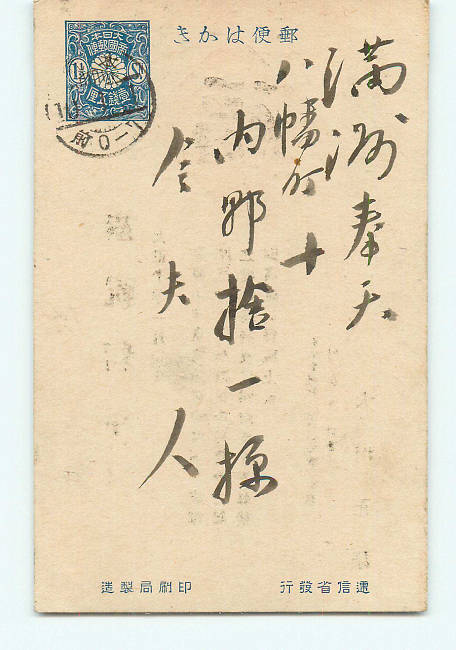 郵便はかき
大日本
帝國郵便
壹錢五厘
満洲奉天
八幡町十
内野捨一様
令夫人
遞信省發行
印刷局製造